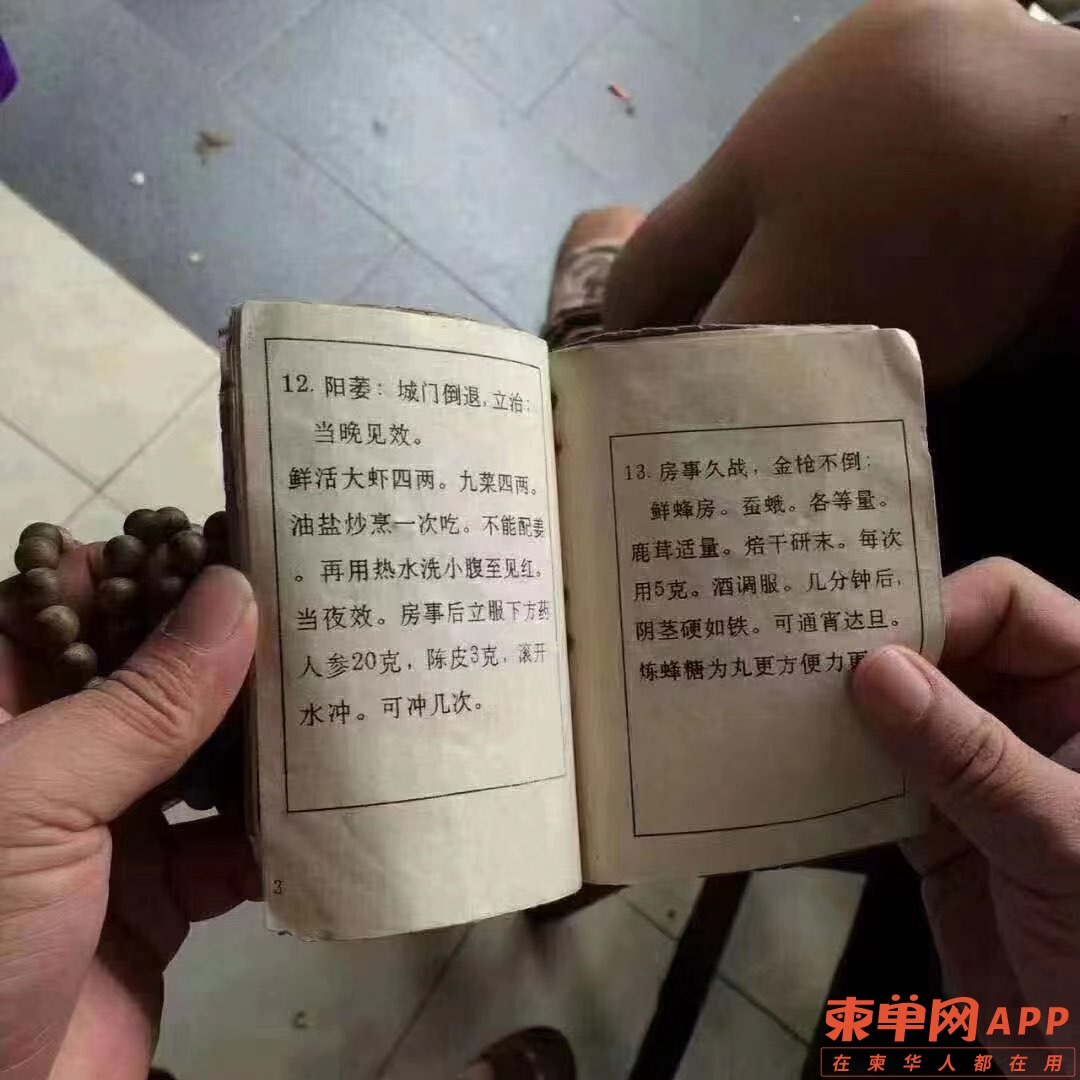 12. 阳萎：城门倒退,立治：
当晚见效。
鲜活大虾四两。九菜四两。
油盐炒烹一次吃。不能配姜
。再用热水洗小腹至见红。
当夜效。房事后立服下方药
人参20克，陈皮3克，滚开
水冲。可冲几次。
3
13. 房事久战，金枪不倒：
鲜蜂房。蚕蛾。各等量。
鹿茸适量。焙干研末。每次
用5克。酒调服。几分钟后，
阴茎硬如铁。可通宵达旦。
炼蜂糖为丸更方便力更
柬单网APP
在柬华人都在用